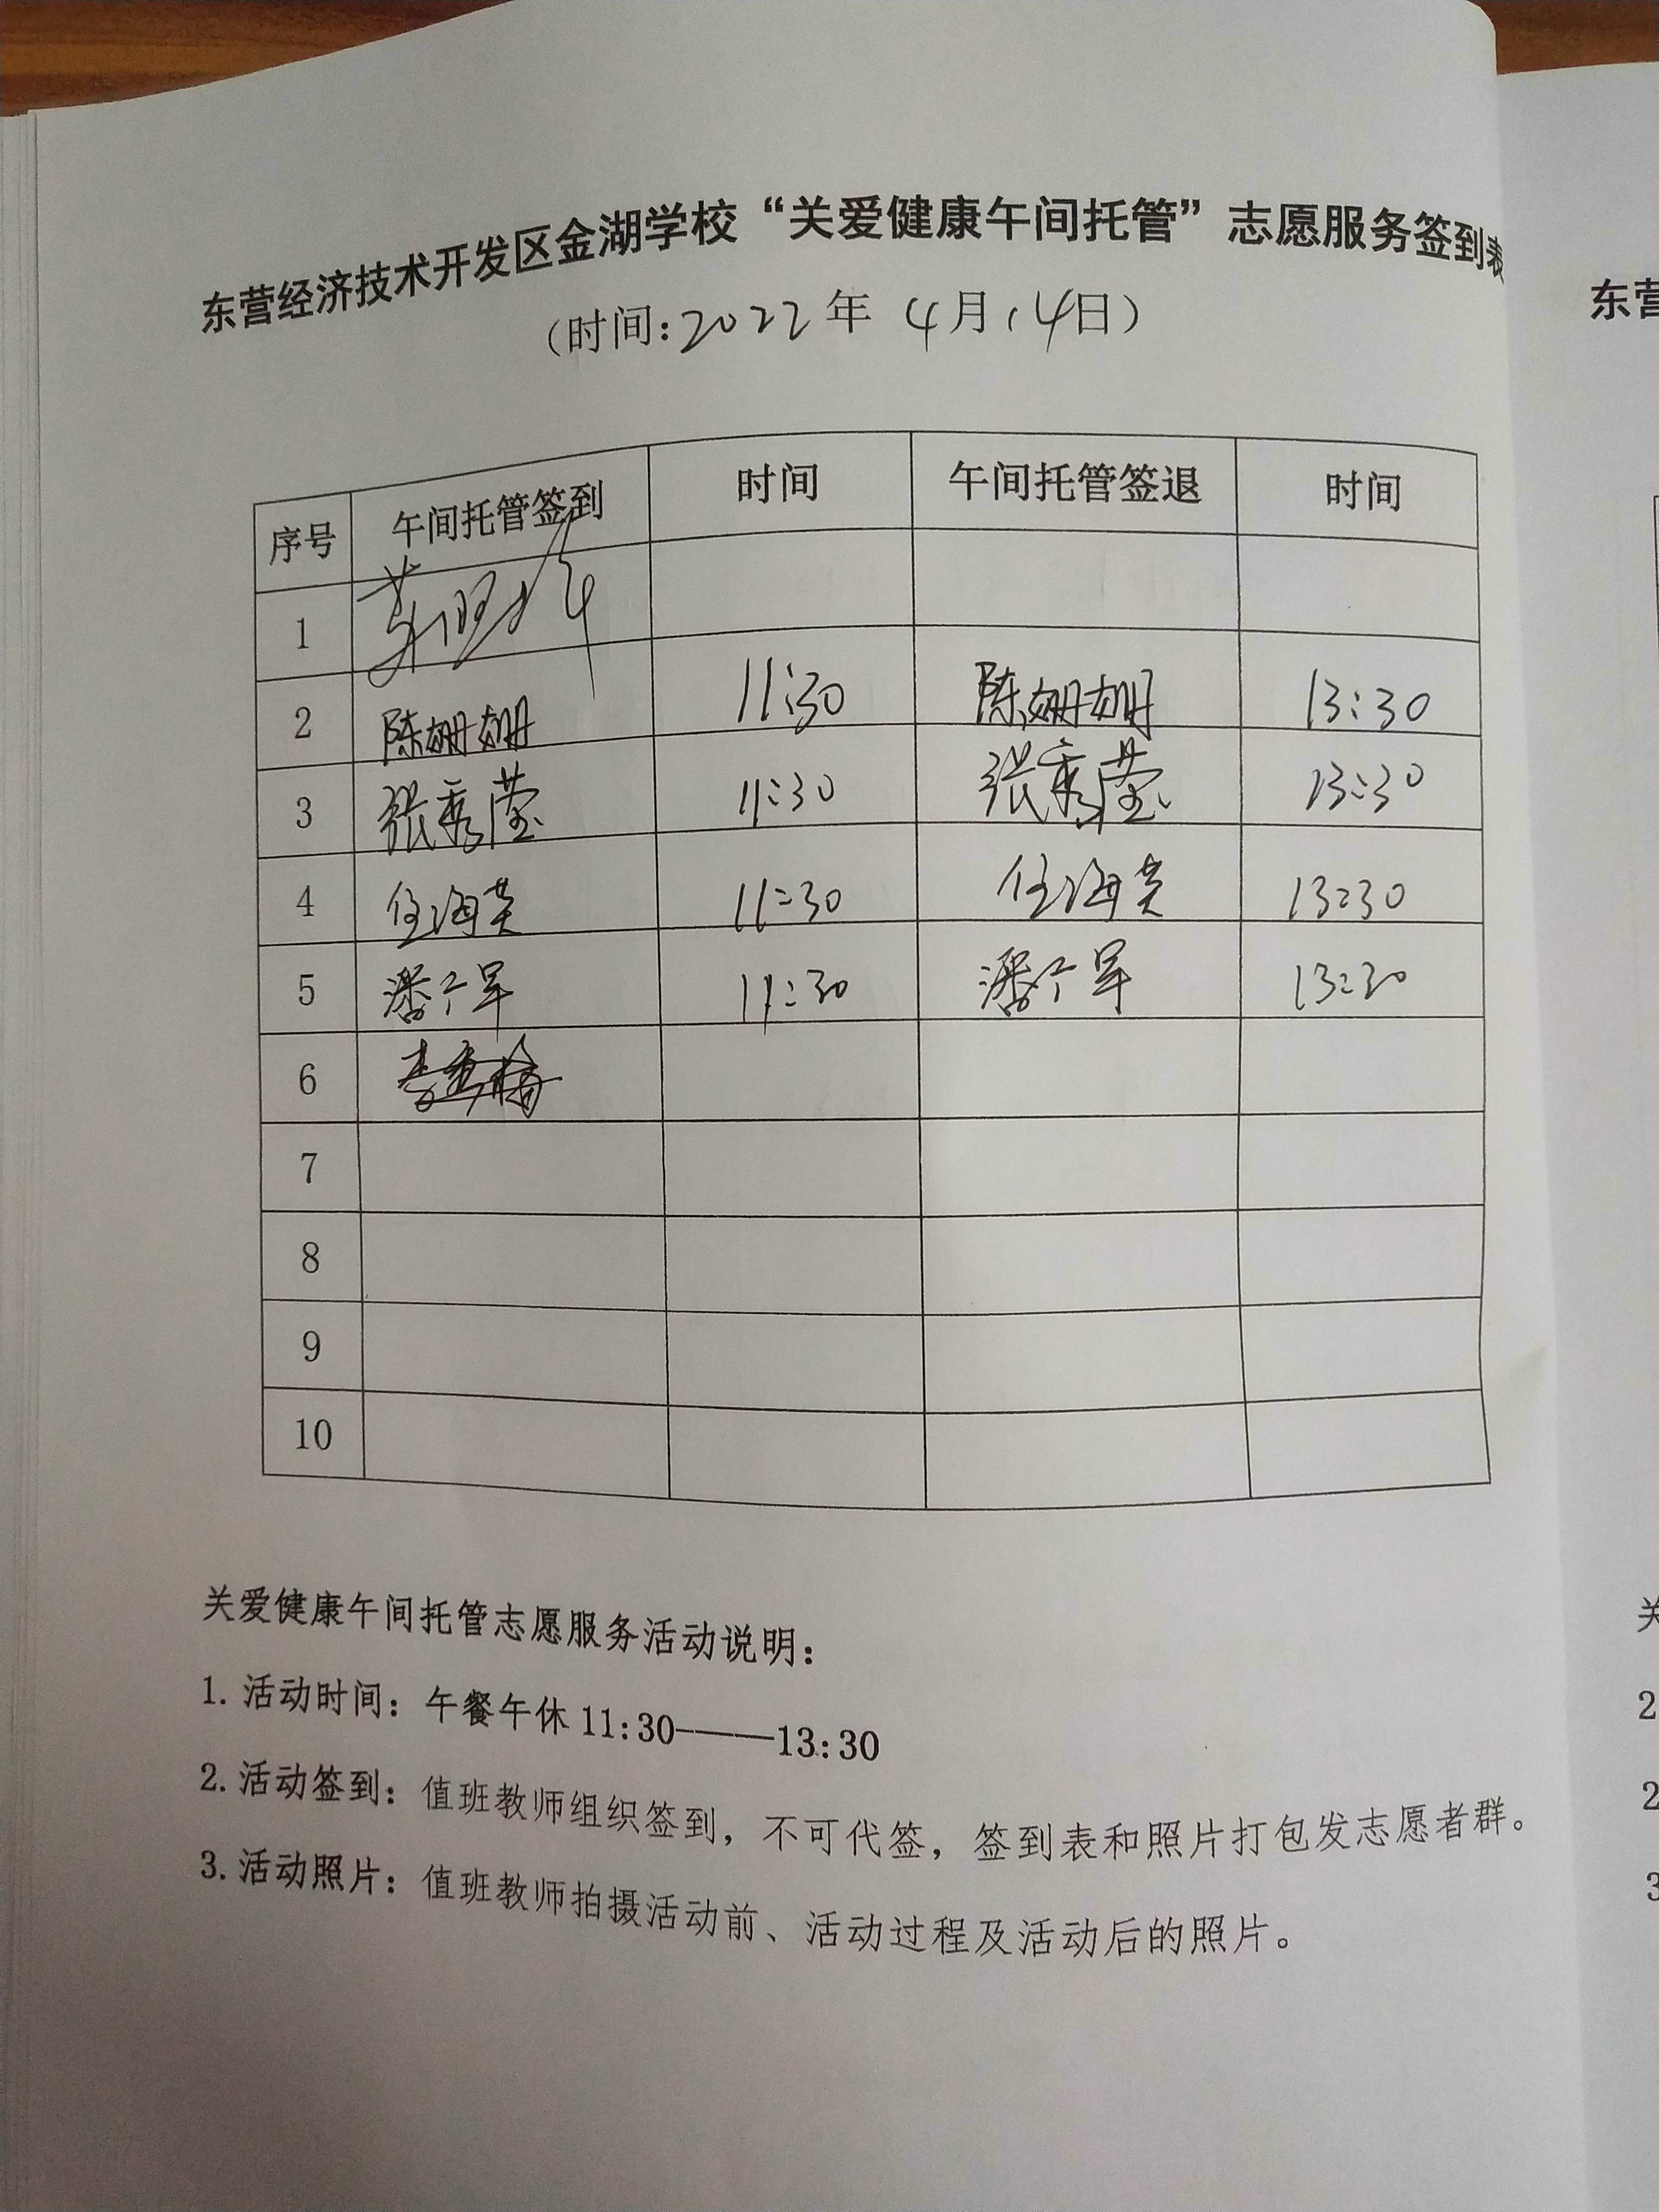 东营经济技术开发区金湖学校“关爱健康午间托管”志愿服务签到表
（时间:2022年 4月14日）
序号 午间托管签到 时间 午间托管签退 时间
1
2 陈姗姗 11:30 陈姗姗 13:30
3 张秀莹 11:30 张秀莹 13:30
4 任海英 11:30 任海英 13:30
5 潘个军 11:30 潘个军 13:30
6
7
8
9
10
关爱健康午间托管志愿服务活动说明：
1. 活动时间：午餐午休 11:30———13:30
2. 活动签到：值班教师组织签到，不可代签，签到表和照片打包发志愿者群。
3. 活动照片：值班教师拍摄活动前、活动过程及活动后的照片。
东营
关
2
2
3